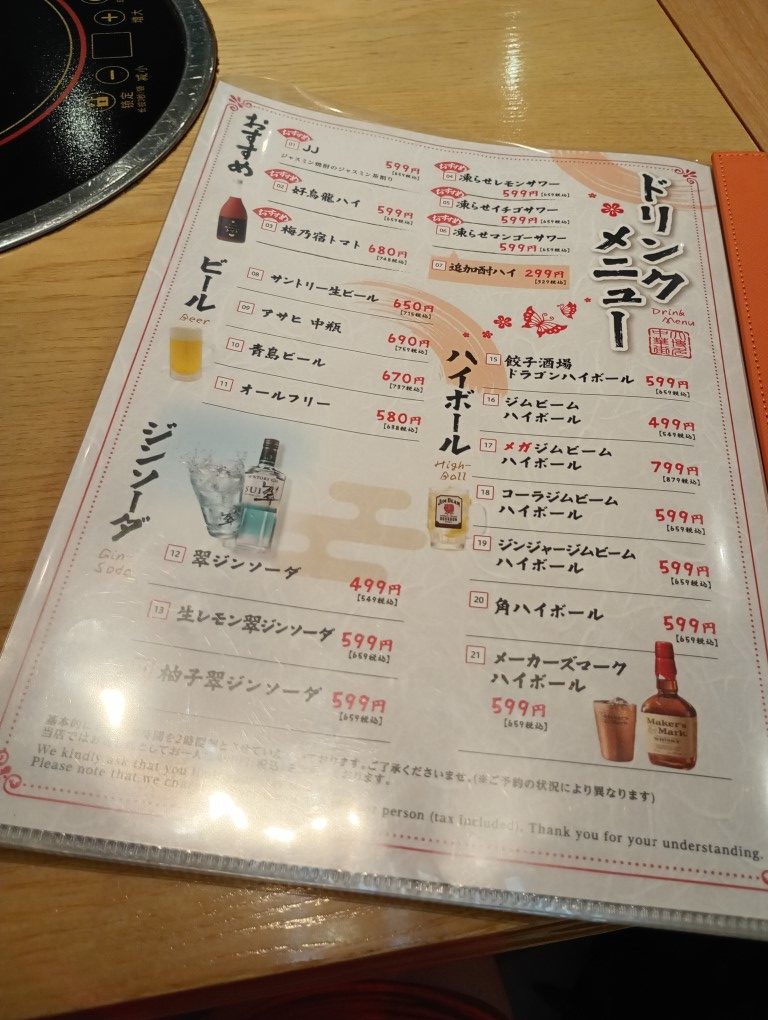 ドリンク
メニュー
Drink
Menu
おすすめ
おすすめ
01 JJ
ジャスミン焼酎のジャスミン茶割り
599円
[659税込]
おすすめ
02 好烏龍ハイ
599円
[659税込]
おすすめ
03 梅乃宿トマト 680円
[748税込]
おすすめ
04 凍らせレモンサワー
599円 [659税込]
おすすめ
05 凍らせイチゴサワー
599円 [659税込]
おすすめ
06 凍らせマンゴーサワー
599円 [659税込]
07 追加酎ハイ 299円
[329税込]
ビール
Beer
08 サントリー生ビール 650円
[715税込]
09 アサヒ 中瓶 690円
[759税込]
10 青島ビール 670円
[737税込]
11 オールフリー 580円
[638税込]
ジンソーダ
Gin-
Soda
SUI
翠
12 翠ジンソーダ 499円
[549税込]
13 生レモン翠ジンソーダ 599円
[659税込]
柚子翠ジンソーダ 599円
[659税込]
ハイボール
High-
Ball
JIM BEAM
15 餃子酒場
ドラゴンハイボール 599円
[659税込]
16 ジムビーム
ハイボール 499円
[549税込]
17 メガジムビーム
ハイボール 799円
[879税込]
18 コーラジムビーム
ハイボール 599円
[659税込]
19 ジンジャージムビーム
ハイボール 599円
[659税込]
20 角ハイボール 599円
[659税込]
21 メーカーズマーク
ハイボール
599円
[659税込]
Maker's
Mark
WHISKY
基本的
当店ではお 時間を2時間 ております。ご了承くださいませ。(※ご予約の状況により異なります)
としてお一人 おります。
We kindly ask that you
Please note that we cha person (tax included). Thank you for your understanding.
锁定
减小
增大